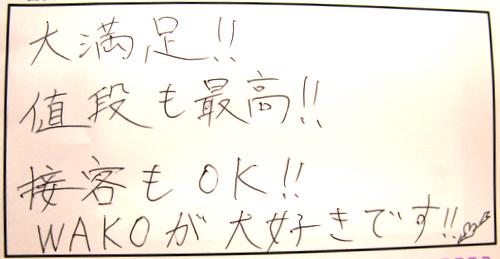 大満足!!
値段も最高!!
接客もOK!!
WAKOが大好きです!!